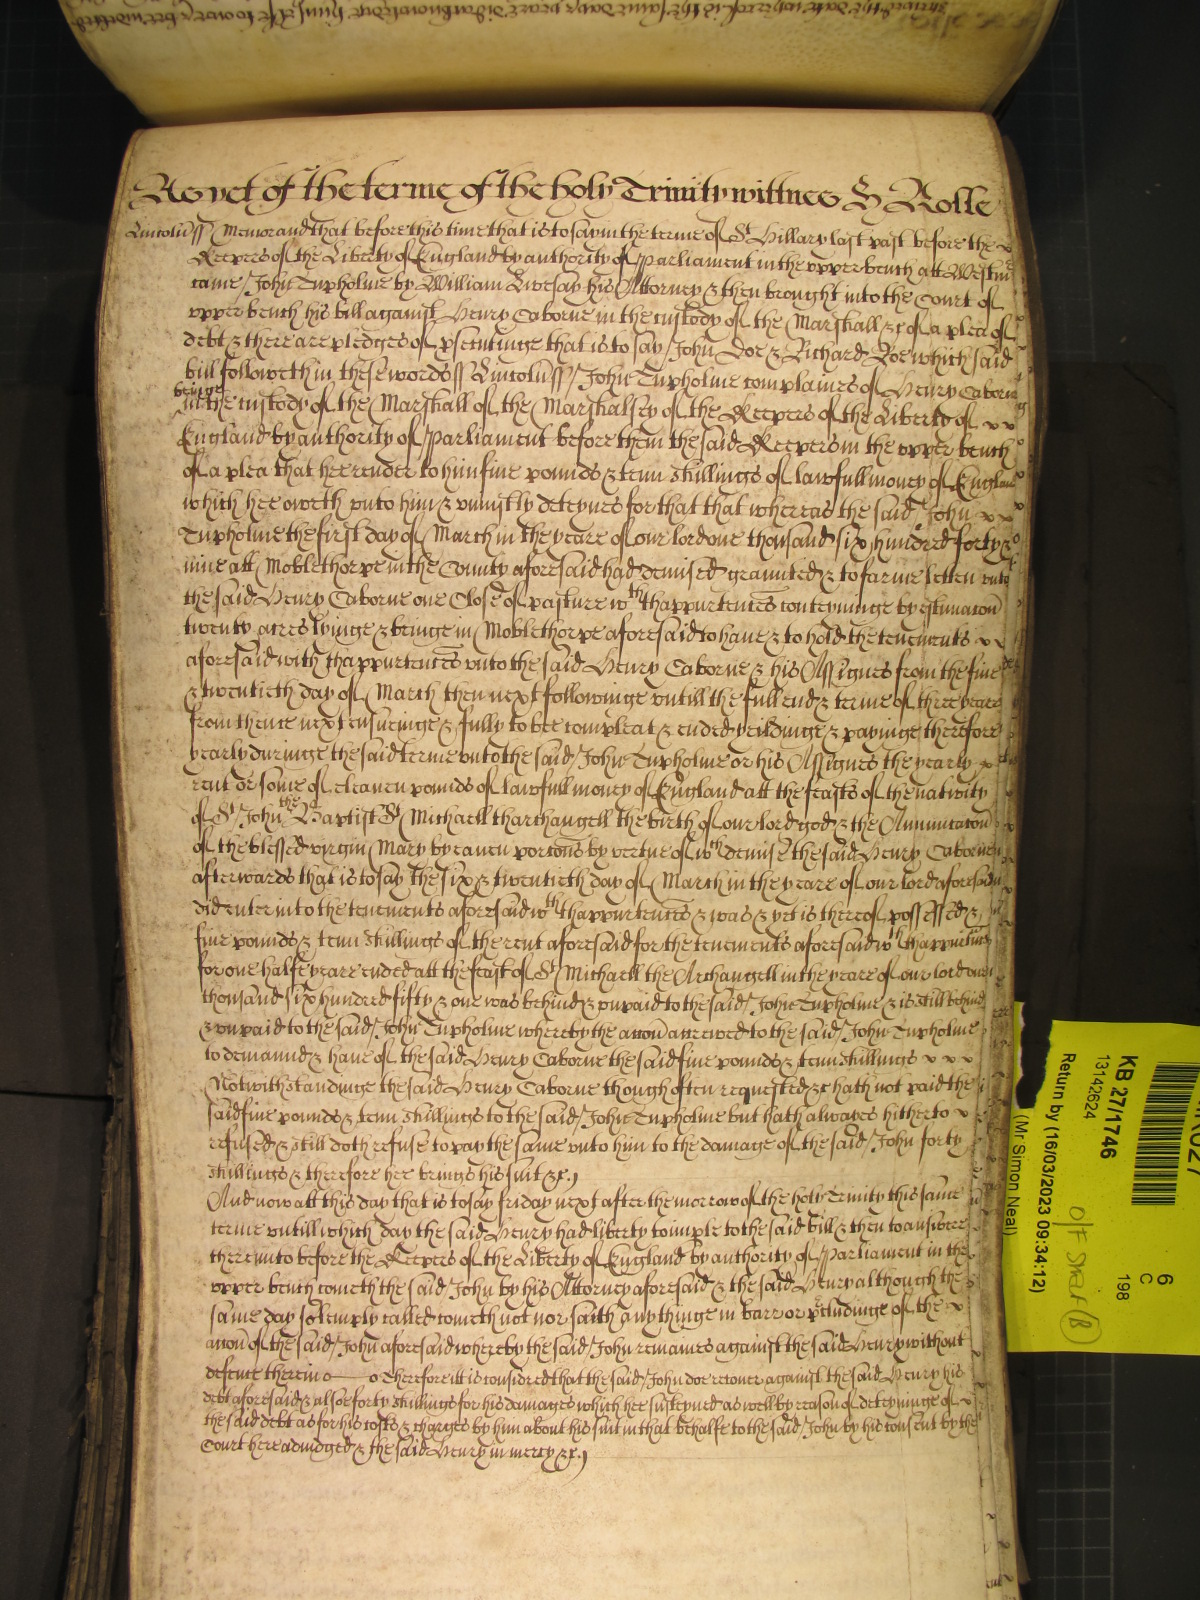 As yet of the terme of the holy Trinity wittnes H Rolle
Lincoln ss Memorand that before this time that is to say in the terme of St Hillary last past before the
Keepers of the Liberty of England by authority of Parliament in the upper bench att Westm
came John Tupholme by William Livesay his Attorney & then brought into the Court of
upper bench his bill against Henry Caborne in the custody of the Marshall &c of a plea of
debt & there are pledges of psecutinge that is to say John Doe & Richard Roe which said
bill followeth in these words ss Lincoln ss John Tupholme complaines of Henry Caborne
beinge
in the custody of the Marshall of the Marshalsey of the Keepers of the Liberty of
England by authority of Parliament before them the said Keepers in the upper bench
of a plea that hee render to him five pounds & tenn shillings of lawfull money of England
which hee oweth unto him & uniustly deteynes for that that whereas the said John
Tupholme the first day of March in the yeare of our lord one thousand six hundred forty &
nine att Moblethorpe in the County aforesaid had demised graunted & to farme letten unto
the said Henry Caborne one Close of pasture wth thappurtences conteyninge by estimacon
twenty acres lyinge & beinge in Moblethorpe aforesaid to have & to hold the tenements
aforesaid with thappurtences unto the said Henry Caborne & his Assignes from the five
& twentieth day of March then next followinge untill the full end & terme of three yeares
from thence next ensueinge & fully to bee compleat & ended yeildinge & payinge therefore
yearly duringe the said terme unto the said John Tupholme or his Assignes the yearly
rent or some of eleaven pounds of lawfull money of England att the feasts of the nativity
of St John the Baptist St Michaell tharchangell the birth of our lord god & the Annunciacon
of the blessed virgin Mary by eaven porcons by vertue of wch demise the said Henry Caborne
afterwards that is to say the six & twentieth day of March in the yeare of our lord aforesaid
did enter into the tenements aforesaid wth thappurtences & was & yet is thereof possessed &
five pounds & tenn shillings of the rent aforesaid for the tenements aforesaid wth thappurtences
for one halfe yeare ended att the feast of St Michaell the Archangell in the yeare of our lord one
thousand six hundred fifty & one was behind & unpaid to the said John Tupholme & is still behind
& unpaid to the said John Tupholme whereby the accon accrewed to the said John Tupholme
to demaund & have of the said Henry Caborne the said five pounds & tenn shillings
Notwithstandinge the said Henry Caborne though often requested &c hath not paid the
said five pounds & tenn shillings to the said John Tupholme but hath alwayes hitherto
refused & still doth refuse to pay the same unto him to the damage of the said John forty
shillings & therefore hee brings his suit &c
And now att this day that is to say friday next after the morrow of the holy Trinity this same
terme untill which day the said Henry had liberty to imple to the said bill & then to answere
thereunto before the Keepers of the Liberty of England by authority of Parliament in the
upper bench cometh the said John by his Attorney aforesaid & the said Henry although the
same day solemply called cometh not nor saith any thinge in barr or pcludinge of the
accon of the said John aforesaid whereby the said John remaines against the said Henry without
defence therein Therefore itt is considred that the said John doe recover against the said Henry his
debt aforesaid & alsoe forty shillings for his damages which hee susteyned as well by reason of deteyninge of
the said debt as for his costs & charges by him about his suit in that behalfe to the said John by his consent by the
Court here adiudged & the said Henry in mercy &c
KB 27/1746
13142624
Return by (16/03/2023 09:34:12)
(Mr Simon Neal)
6
C
198
O/F Shelf B